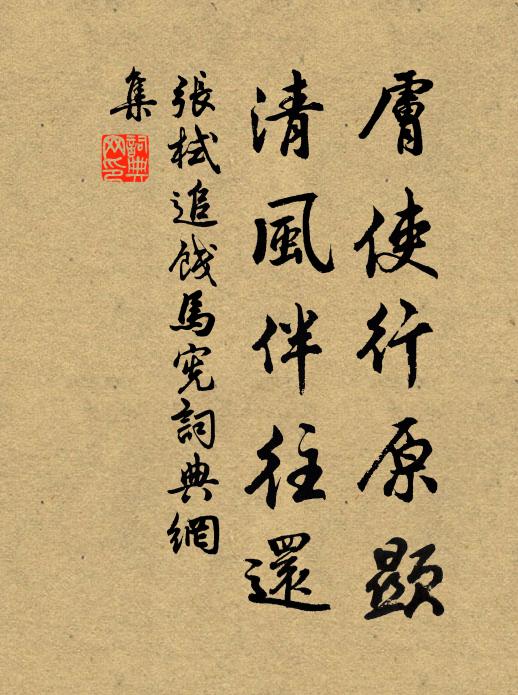 膚使行原顯
清風伴往還
張栻追餞馬宪詞典網
集
詞典
网印